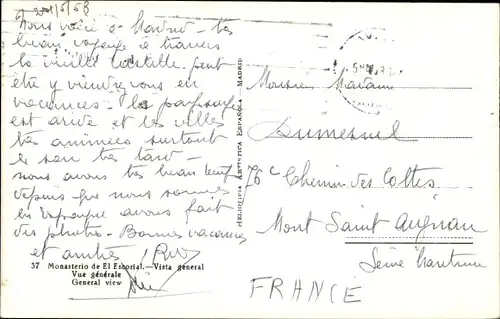 Nous voici à Madrid - très
beau voyage à travers
la vieille Castille. peut
être y viendrez vous en
vacances. le paysage
est aride et les villes
très animées surtout
le soir très tard -
nous avons très beau temps
depuis que nous sommes
en Espagne avons fait
des photos - Bonnes vacances
et amitiés
37 Monasterio de El Escorial.—Vista general
Vue générale
General view
HELIOTIPIA ARTÍSTICA ESPAÑOLA - MADRID
Monsieur Madame
Dumesnil
76c Chemin des Cottes
Mont Saint Aignan
Seine Maritime
FRANCE